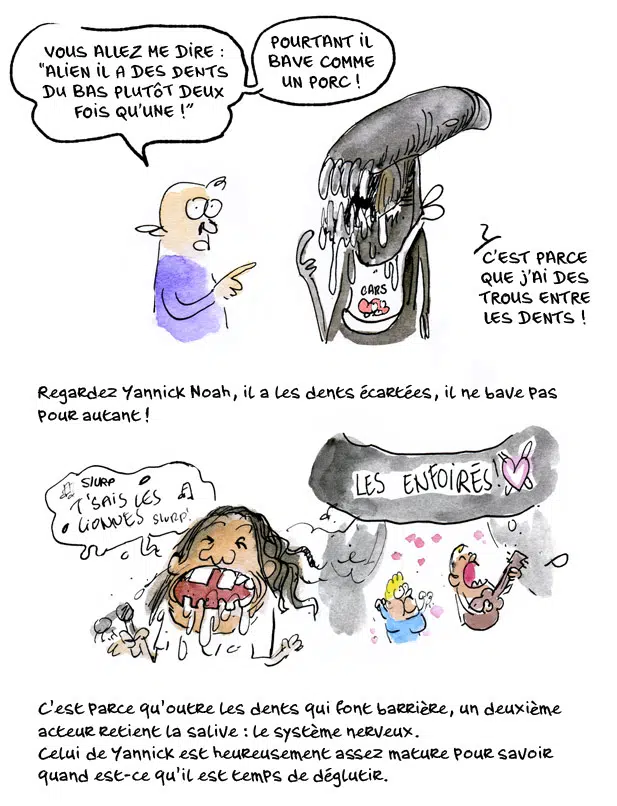 VOUS ALLEZ ME DIRE :
"ALIEN IL A DES DENTS
DU BAS PLUTÔT DEUX
FOIS QU'UNE !"
POURTANT IL
BAVE COMME
UN PORC !
CARS
C'EST PARCE
QUE J'AI DES
TROUS ENTRE
LES DENTS !
Regardez Yannick Noah, il a les dents écartées, il ne bave pas
pour autant !
SLURP
T'SAIS LES
LIONNES SLURP!
LES ENFOIRÉS!
C'est parce qu'outre les dents qui font barrière, un deuxième
acteur retient la salive : le système nerveux.
Celui de Yannick est heureusement assez mature pour savoir
quand est-ce qu'il est temps de déglutir.